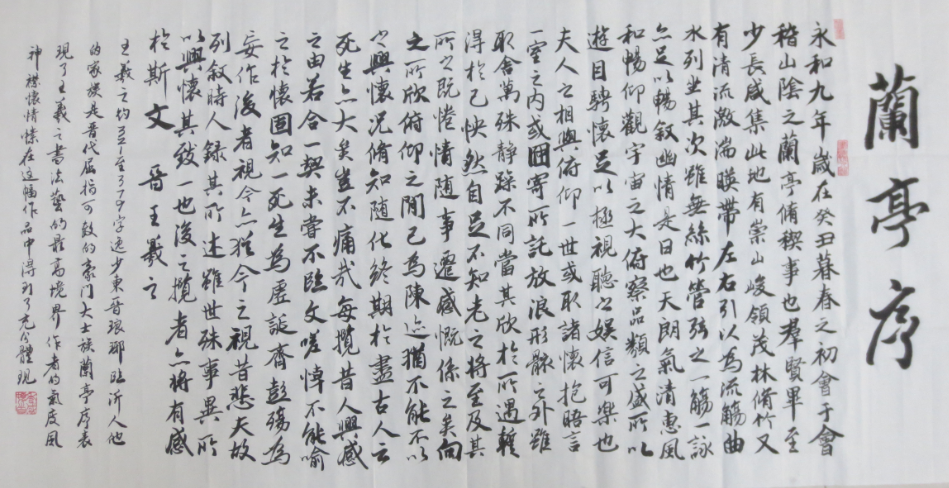 蘭亭序
永和九年歲在癸丑暮春之初會于會
稽山陰之蘭亭脩稧事也羣賢畢至
少長咸集此地有崇山峻領茂林脩竹又
有清流激湍暎帶左右引以為流觴曲
水列坐其次雖無絲竹管弦之一觴一詠
亦足以暢敘幽情是日也天朗氣清惠風
和暢仰觀宇宙之大俯察品類之盛所以
遊目騁懷足以極視聽之娛信可樂也
夫人之相與俯仰一世或取諸懷抱晤言
一室之內或因寄所託放浪形骸之外雖
取舍萬殊靜躁不同當其欣於所遇輙
得於己怏然自足不知老之將至及其
所之既惓情隨事遷感慨係之矣向
之所欣俯仰之閒已為陳迹猶不能不以
之興懷況脩知隨化終期於盡古人云
死生亦大矣豈不痛哉每攬昔人興感
之由若合一契未嘗不臨文嗟悼不能喻
之於懷固知一死生為虛誕齊彭殤為
妄作後者視今亦猶今之視昔悲夫故
列敘時人錄其所述雖世殊事異所
以興懷其致一也後之攬者亦將有感
於斯文 晉王羲之
王羲之約 至 字逸少東晉琅琊臨沂人他
的家族是晉代屈指可數的豪门大士族蘭亭序表
現了王羲之書法藝的最高境界作者的氣度風
神襟懷情愫在這幅作品中得到了充分體現